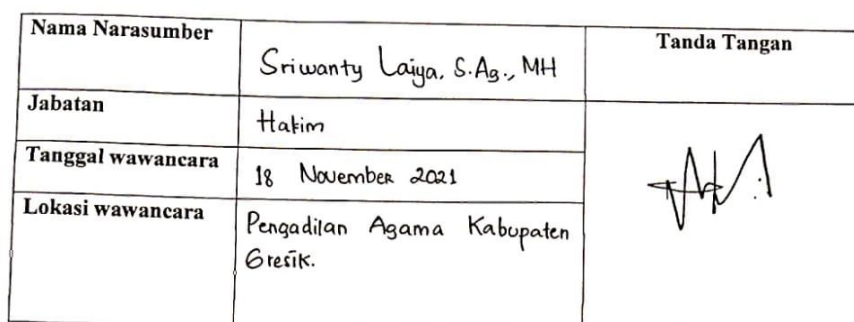 Nama Narasumber
Sriwanty Laiya, S.Ag., MH
Tanda Tangan
Jabatan
Hakim
Tanggal wawancara
18 November 2021
Lokasi wawancara
Pengadilan Agama Kabupaten
Gresik.